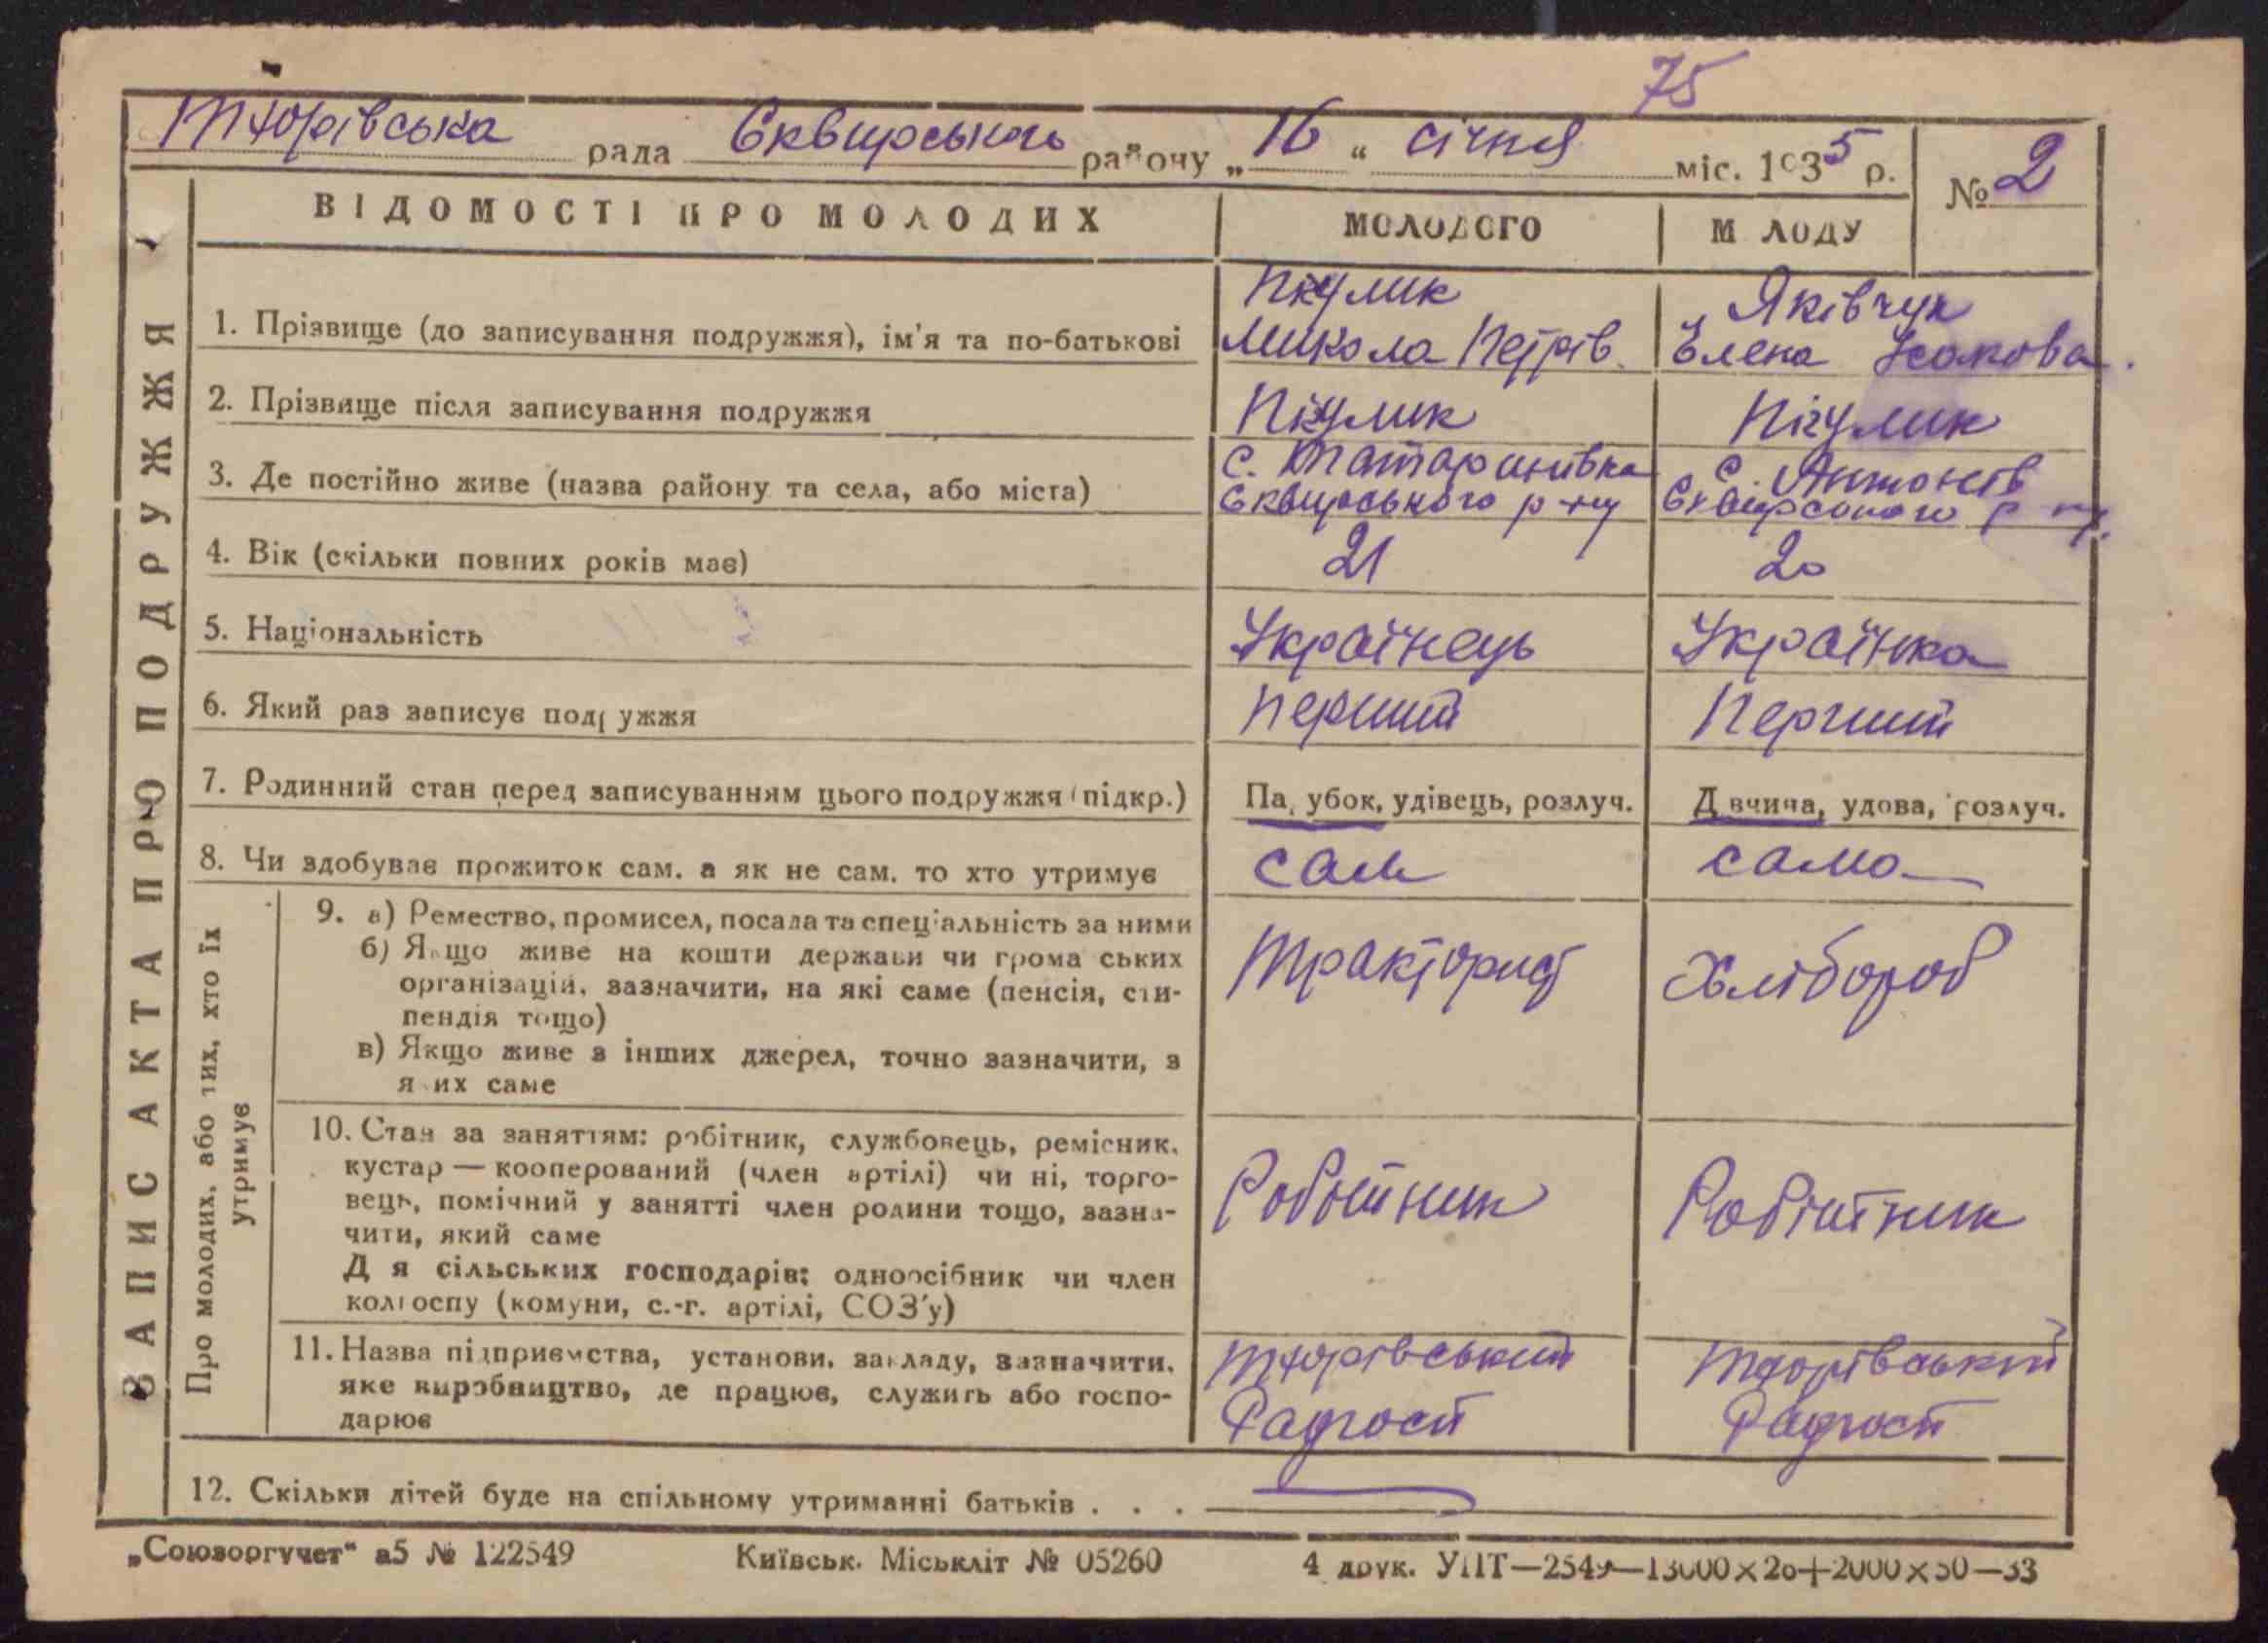 75
Тхорівська рада Сквирського району „16“ січня міс. 1935 р.
№ 2
ВІДОМОСТІ ПРО МОЛОДИХ
МОЛОДОГО
МОЛОДУ
ЗАПИС АКТА ПРО ПОДРУЖЖЯ
1. Прізвище (до записування подружжя), ім'я та по-батькові
Пікулик
Микола Петрів.
Яківчук
Елена Ісакова.
2. Прізвище після записування подружжя
Пікулик
Пікулик
3. Де постійно живе (назва району та села, або міста)
с. Татаринівка
Сквирського р-ну
с. Антонів
Сквирського р-ну.
4. Вік (скільки повних років має)
21
20
5. Національність
Українець
Українка
6. Який раз записує подружжя
Перший
Перший
7. Родинний стан перед записуванням цього подружжя (підкр.)
Парубок, удівець, розлуч.
Дівчина, удова, розлуч.
8. Чи здобуває прожиток сам, а як не сам, то хто утримує
сам
сама
Про молодих, або тих, хто їх
утримує
9. а) Ремество, промисел, посада та спеціальність за ними
б) Якщо живе на кошти держави чи громадських
організацій, зазначити, на які саме (пенсія, сти-
пендія тощо)
в) Якщо живе з інших джерел, точно зазначити, з
яких саме
Тракторист
Хлібороб
10. Стан за заняттям: робітник, службовець, ремісник,
кустар — кооперований (член артілі) чи ні, торго-
вець, помічний у занятті член родини тощо, зазна-
чити, який саме
Для сільських господарів: одноосібник чи член
колгоспу (комуни, с.-г. артілі, СОЗ'у)
Робітник
Робітник
11. Назва підприємства, установи, закладу, зазначити,
яке виробництво, де працює, служить або госпо-
дарює
Тхорівський
Радгосп
Тхорівський
Радгосп
12. Скільки дітей буде на спільному утриманні батьків . . .
„Союзоргучет“ а5 № 122549
Київськ. Міськліт № 05260
4 друк. УПТ—2549—13000×20+2000×50—33